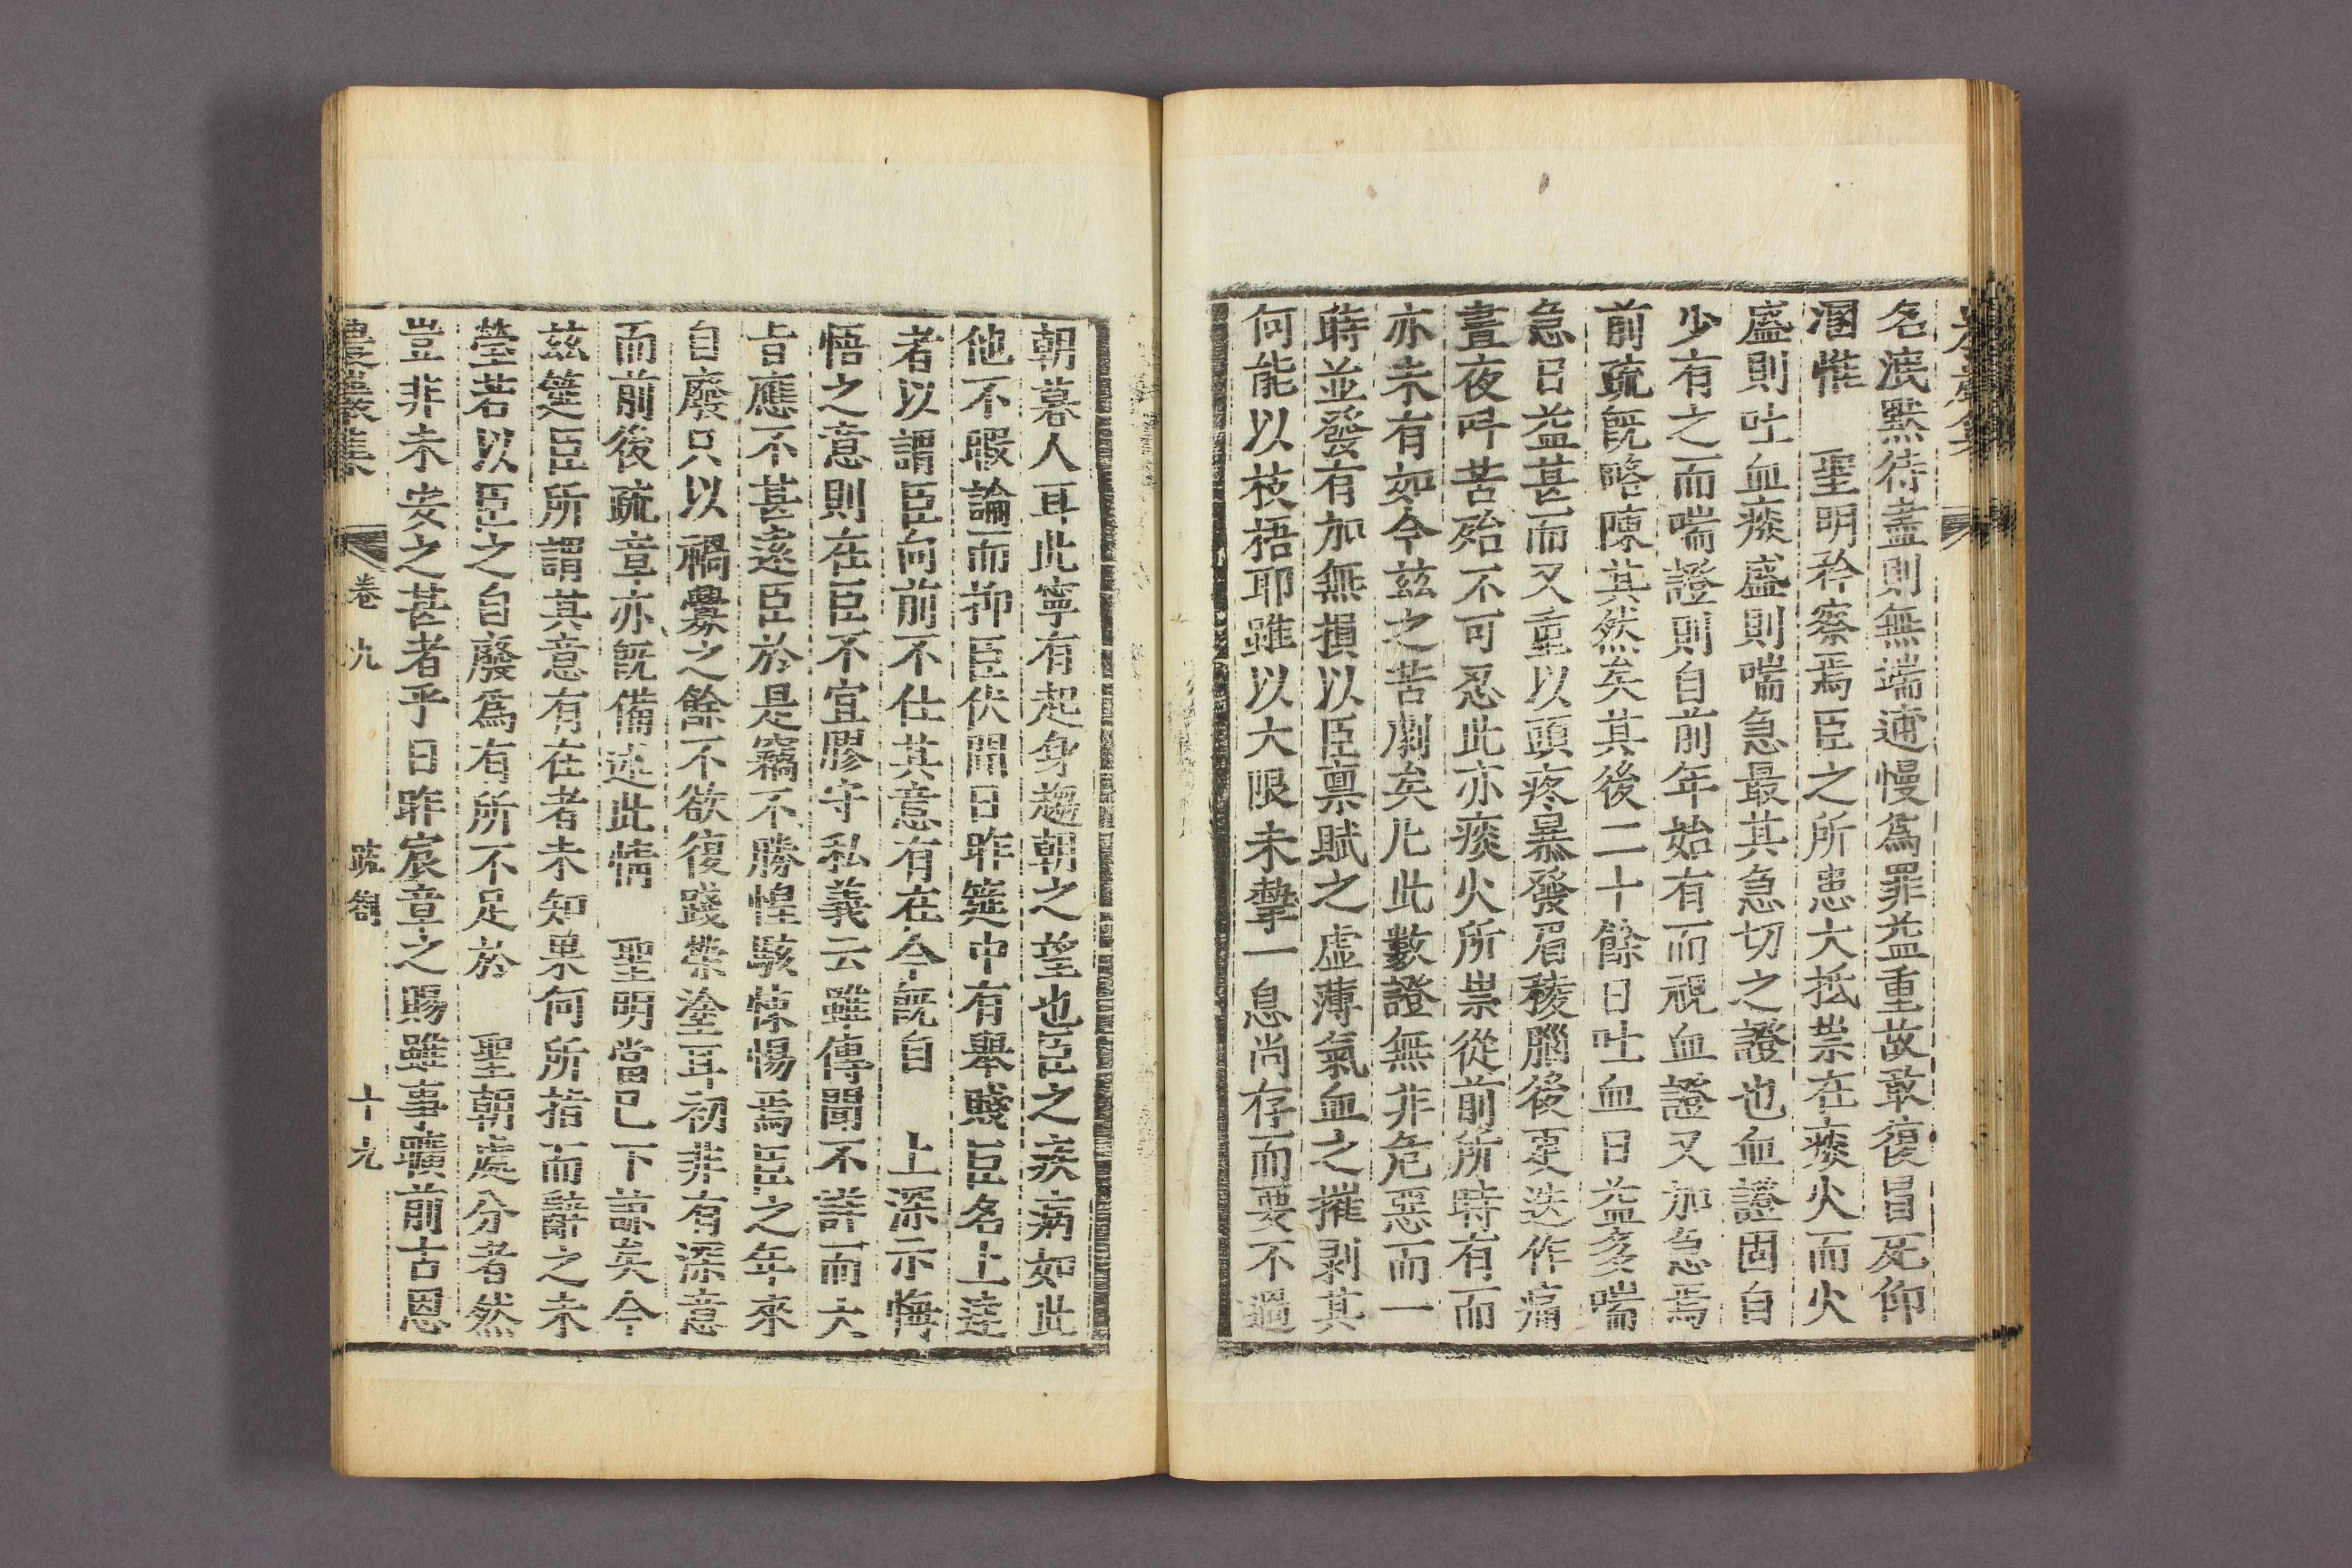 名泯默待盡則無端逋慢爲罪益重故敢復冒死仰
溷惟　聖明矜察焉臣之所患大抵祟在痰火而火
盛則吐血痰盛則喘急最其急切之證也血證固自
少有之而喘證則自前年始有而視血證又加急焉
前疏旣略陳其然矣其後二十餘日吐血日益多喘
急日益甚而又重以頭疼暴發眉稜腦後更迭作痛
晝夜呌苦殆不可忍此亦痰火所祟從前所時有而
亦未有如今玆之苦劇矣凡此數證無非危惡而一
時並發有加無損以臣禀賦之虛薄氣血之摧剥其
何能以枝梧耶雖以大限未摯一息尚存而要不過
朝暮人耳此寧有起身趨朝之望也臣之疾病如此
他不暇論而抑臣伏聞日昨筵中有舉賤臣名上達
者以謂臣向前不仕其意有在今旣自　上深示悔
悟之意則在臣不宜膠守私義云雖傳聞不詳而大
旨應不甚遠臣於是竊不勝惶駭悚惕焉臣之年來
自廢只以禍釁之餘不欲復踐榮塗耳初非有深意
而前後疏章亦旣備述此情　聖明當已下諒矣今
玆筵臣所謂其意有在者未知果何所指而辭之未
瑩若以臣之自廢爲有所不足於　聖朝處分者然
豈非未安之甚者乎日昨宸章之賜雖事曠前古恩
農巖集　卷九　疏箚　十九